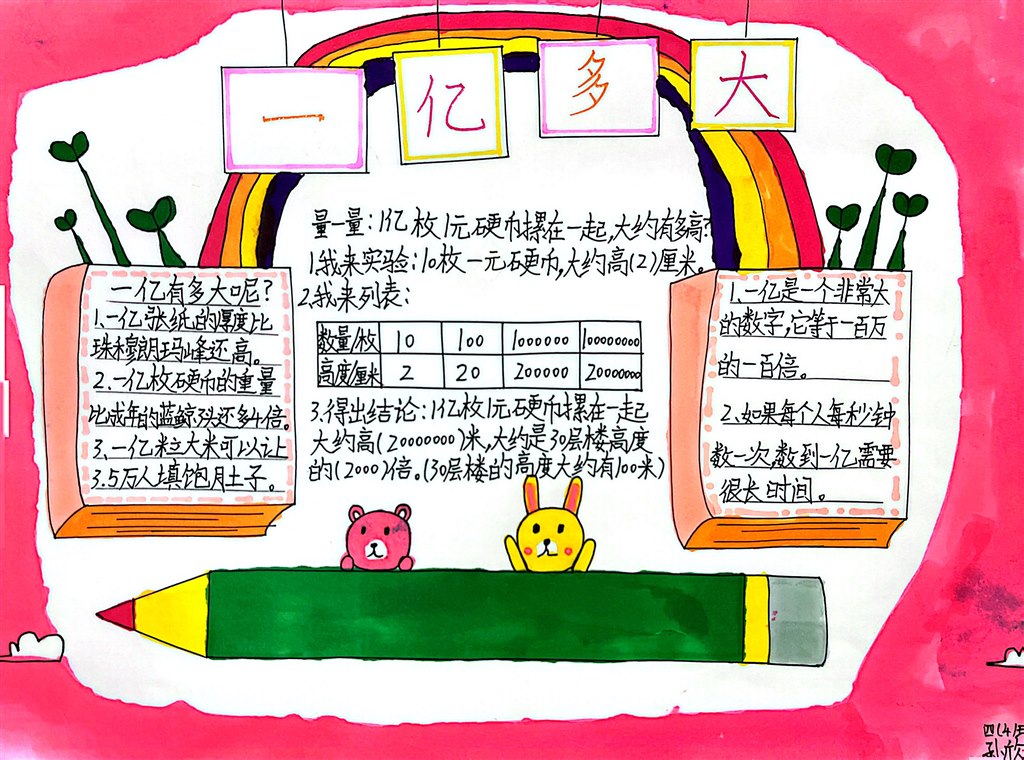 一亿多大
量一量:1亿枚1元硬币摞在一起,大约有多高?
1.我来实验:10枚一元硬币,大约高(2)厘米。
2.我来列表:
数量/枚 10 100 1000000 100000000
高度/厘米 2 20 200000 20000000
3.得出结论:1亿枚1元硬币摞在一起
大约高(20000000)米,大约是30层楼高度
的(2000)倍。(30层楼的高度大约有100米)
一亿有多大呢?
1.一亿张纸的厚度比
珠穆朗玛峰还高。
2.一亿枚硬币的重量
比成年的蓝鲸3头还多4倍。
3.一亿粒大米可以让
3.5万人填饱月土子。
1.一亿是一个非常大
的数字,它等于一百万
的一百倍。
2.如果每个人每秒钟
数一次,数到一亿需要
很长时间。
四(4)
孙欣